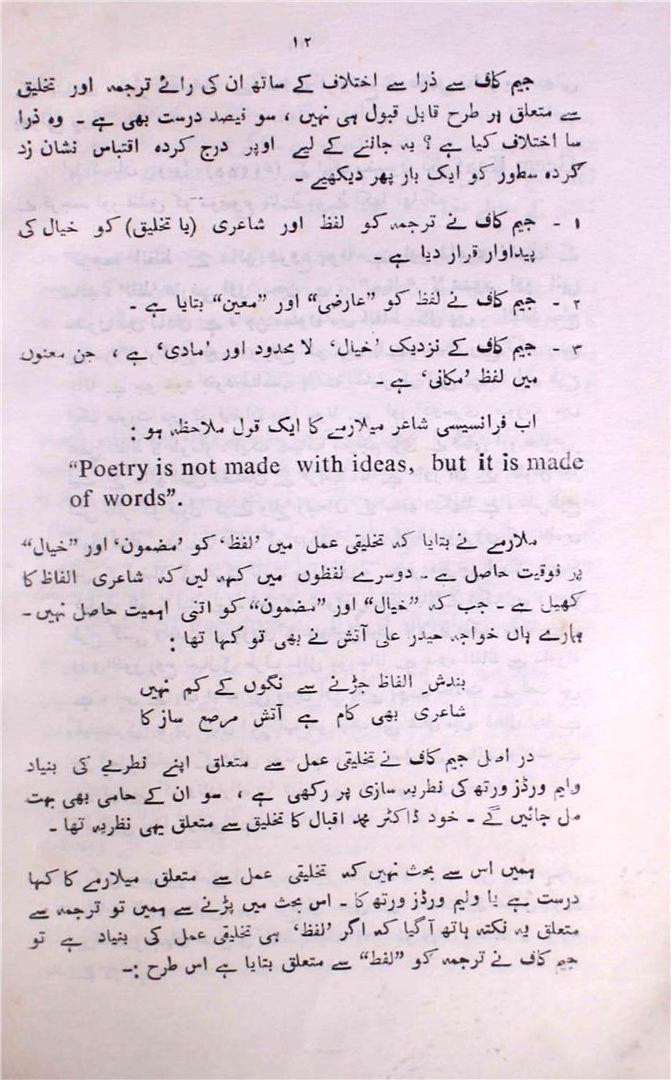 ۱۲
جیم کاف سے ذرا سے اختلاف کے ساتھ ان کی رائے ترجمہ اور تخلیق
سے متعلق ہر طرح قابل قبول ہی نہیں ، سو فیصد درست بھی ہے ۔ وہ ذرا
سا اختلاف کیا ہے ؟ یہ جاننے کے لیے اوپر درج کردہ اقتباس نشان زد
کردہ سطور کو ایک بار پھر دیکھیے ۔
۱ ۔ جیم کاف نے ترجمہ کو لفظ اور شاعری (یا تخلیق) کو خیال کی
پیداوار قرار دیا ہے ۔
۲ ۔ جیم کاف نے لفظ کو ”عارضی“ اور ”معین“ بتایا ہے ۔
۳ ۔ جیم کاف کے نزدیک ’خیال‘ لا محدود اور ’مادی‘ ہے ، جن معنوں
میں لفظ ’مکانی‘ ہے ۔
اب فرانسیسی شاعر میلارمے کا ایک قول ملاحظہ ہو :
“Poetry is not made with ideas, but it is made
of words”.
ملارمے نے بتایا کہ تخلیقی عمل میں ’لفظ‘ کو ’مضمون‘ اور ”خیال“
پر فوقیت حاصل ہے ۔ دوسرے لفظوں میں کہہ لیں کہ شاعری الفاظ کا
کھیل ہے ۔ جب کہ ”خیال“ اور ”مضمون“ کو اتنی اہمیت حاصل نہیں ۔
ہمارے ہاں خواجہ حیدر علی آتش نے بھی تو کہا تھا :
بندشِ الفاظ جڑنے سے نگوں کے کم نہیں
شاعری بھی کام ہے آتش مرصع ساز کا
در اصل جیم کاف نے تخلیقی عمل سے متعلق اپنے نظریے کی بنیاد
ولیم ورڈز ورتھ کی نظریہ سازی پر رکھی ہے ، سو ان کے حامی بھی بہت
مل جائیں گے ۔ خود ڈاکٹر محمد اقبال کا تخلیق سے متعلق یہی نظریہ تھا ۔
ہمیں اس سے بحث نہیں کہ تخلیقی عمل سے متعلق میلارمے کا کہا
درست ہے یا ولیم ورڈز ورتھ کا ۔ اس بحث میں پڑنے سے ہمیں تو ترجمہ سے
متعلق یہ نکتہ ہاتھ آ گیا کہ اگر ’لفظ‘ ہی تخلیقی عمل کی بنیاد ہے تو
جیم کاف نے ترجمہ کو ”لفظ“ سے متعلق بتایا ہے اس طرح :-